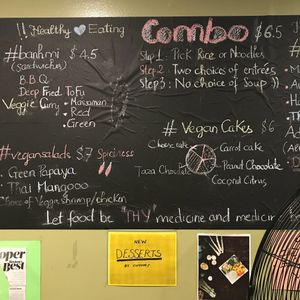 !! Healthy Eating
#banhmi $4.5
(sandwiches)
B.B.Q
Deep Fried Tofu
Veggie Curry • Massaman
• Red
• Green
#vegansalads $7 Spiciness
. Green Papaya
. Thai Mangooo
Choice of Veggie shrimp/chicken
Combo $6.5
Step 1 : Pick Rice or Noodles
Step 2 : Two choices of entrées
Step 3 : No choice of Soup ))
#Vegan Cakes $6
Cheese cake
Carrot cake
Taza Chocolate
Peanut Chocolate
Coconut Citrus
Let food be "THY" medicine and medicin
NEW
DESSERTS
Best